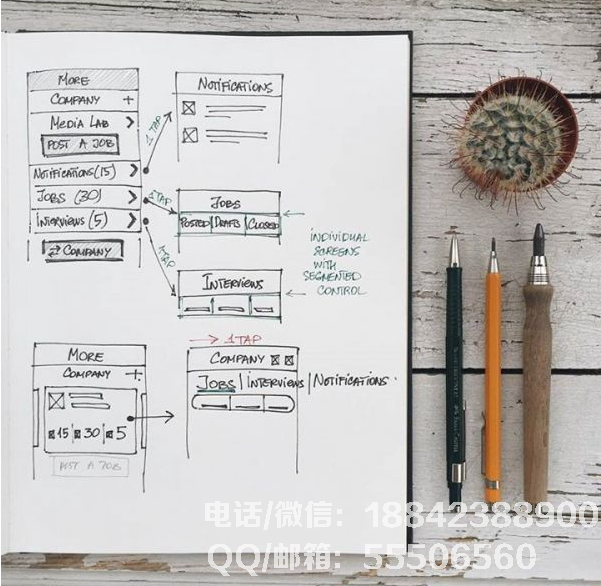 MORE
COMPANY +
MEDIA LAB >
POST A JOB
NOTIFICATIONS (15) >
JOBS (30) >
INTERVIEWS (5) >
COMPANY
1 TAP
NOTIFICATIONS
1 TAP
JOBS
POSTED | DRAFTS | CLOSED
1 TAP
INTERVIEWS
INDIVIDUAL
SCREENS
WITH
SEGMENTED
CONTROL
MORE
COMPANY +
15 30 5
POST A JOB
1 TAP
COMPANY
JOBS | INTERVIEWS | NOTIFICATIONS
电话/微信: 18842388900
QQ/邮箱: 55506560